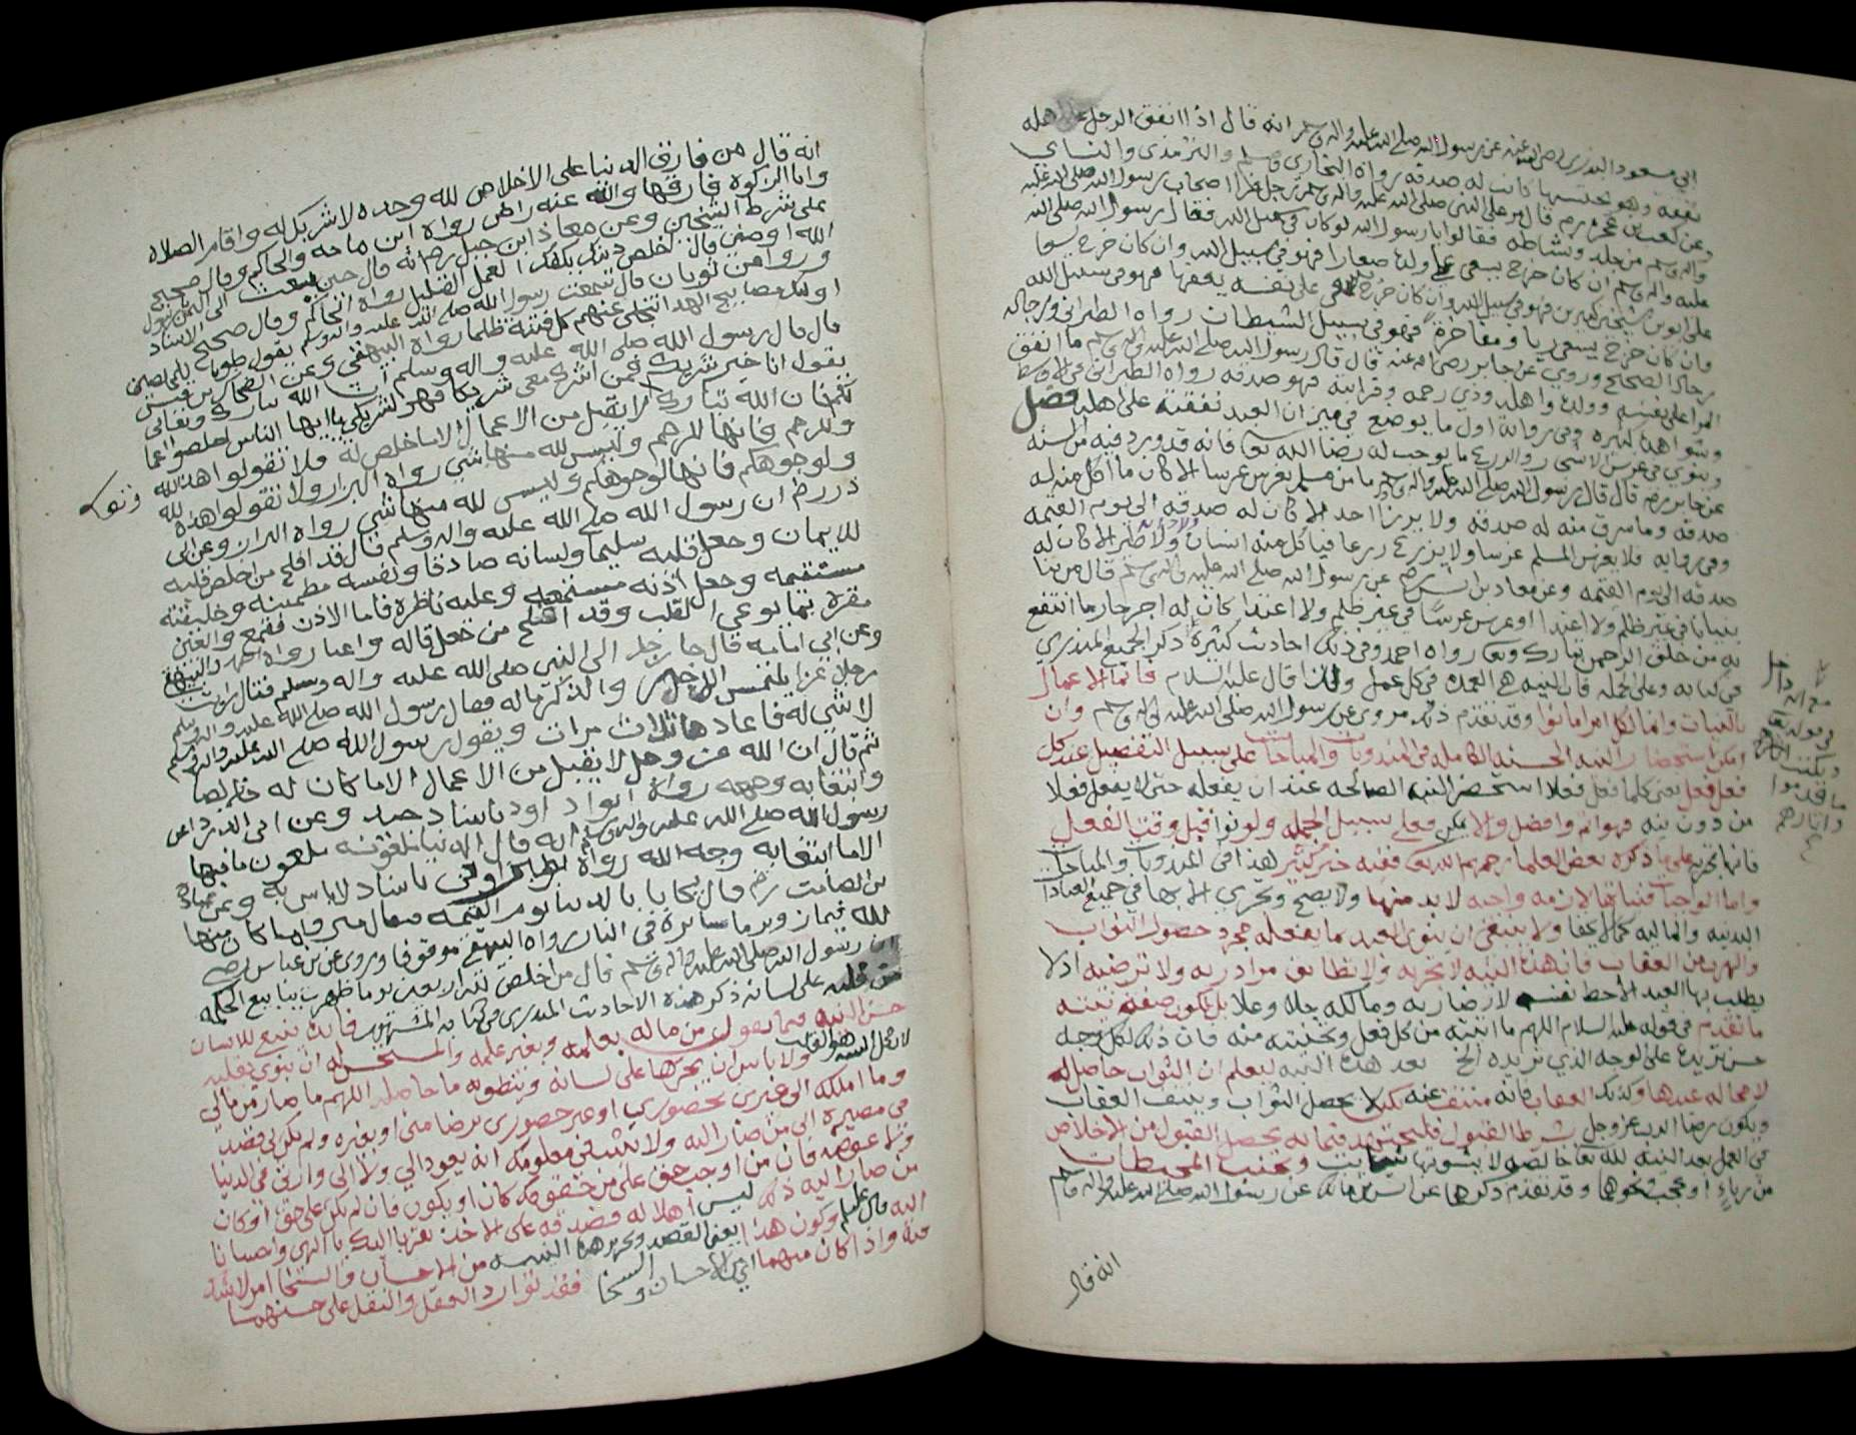 ابي مسعود البدري رضي الله عنه عن رسول الله صلى الله عليه واله وسلم انه قال اذا انفق الرجل على اهله
نفقه وهو يحتسبها كانت له صدقه رواه البخاري ومسلم والترمذي والنساي
وعن كعب بن عجره رض قال مر على النبي صلى الله عليه واله وسلم رجل فرا اصحاب رسول الله صلى الله عليه
واله وسلم من جلده ونشاطه فقالوا يا رسول الله لو كان في سبيل الله فقال رسول الله صلى الله
عليه واله وسلم ان كان خرج يسعى على ولده صغارا فهو في سبيل الله وان كان خرج يسعا
على ابوين شيخين كبيرين فهو في سبيل الله وان كان خرج يسعى على نفسه يعفها فهو في سبيل الله
وان كان خرج يسعى ريا ومفاخرة فهو في سبيل الشيطان رواه الطبراني ورجاله
رجال الصحيح وروي عن جابر رضي الله عنه قال قال رسول الله صلى الله عليه واله وسلم ما انفق
المرا على نفسه وولده واهله وذي رحمه وقرابته فهو صدقه رواه الطبراني في الاوسط
وشواهده كثيره وفي رواية اول ما يوضع في ميزان العبد نفقته على اهله فصل
وينوي في غرس الاشجار والزرع ما يوجب له رضا الله تعا فانه قد ورد فيه من السنه
عن جابر رض قال قال رسول الله صلى الله عليه واله وسلم ما من مسلم يغرس غرسا الا كان ما اكل منه له
صدقه وما سرق منه له صدقه ولا يرزا احد الا كان له صدقه الى يوم القيمه
وفي روايه فلا يغرس المسلم غرسا ولا يزرع زرعا فياكل منه انسان ولا دابه ولا طير الا كان له
صدقه الى يوم القيمه وعن معاذ بن انس رض عن رسول الله صلى الله عليه واله وسلم قال من بنا
بنيانا في غير ظلم ولا اعتدا او غرس غرسا في غير ظلم ولا اعتدا كان له اجر جار ما انتفع
به من خلق الرحمن تبارك وتعا رواه احمد وفي ذلك احاديث كثيرة ذكر الجميع المنذري
في كتابه وعلى الجمله فان النيه هي العمده في كل عمل ولذا قال عليه السلام فانما الاعمال
بالنيات وانما لكل امرا ما نوا وقد تقدم ذلك مروي عن رسول الله صلى الله عليه واله وسلم وان
امكن استحضار النيه الحسنه الكامله في المندوبات والمباحات على سبيل التفصيل عند كل
فعل فعل يعني كلما فعل فعلا استحضر النيه الصالحه عند ان يفعله حتى لا يفعل فعلا
من دون نيه فهو اتم وافضل والا يمكن فعلى سبيل الجمله ولو نوا قبل وقت الفعل
فانها تجزيه على ما ذكره بعض العلما رحمهم الله تعا ففيه خير كثير هذا في المندوبات والمباحات
واما الواجبات فنياتها لازمه واجبه لا بد منها ولا يصح وتجزي الا بها في جميع العبادات
البدنيه والماليه كما لا يخفا ولا ينبغي ان ينوي العبد بما يفعله مجرد حصول الثواب
والهرب من العقاب فان هذه النيه لا تجزيه ولا يطابق مراد ربه ولا ترضيه اذ لا
يطلب بها العبد الا حظ نفسه لا رضا ربه ومالكه جل وعلا بل تكون صفة نيته
ما تقدم في قوله عليه السلام اللهم ما اتيته من كل فعل وتجنبته منه فان ذلك لكل وجه
حسن تريده على الوجه الذي تريده الخ بعد هذه النيه ليعلم ان الثواب حاصل له
لا محاله عندها وكذلك العقاب فانه منتف عنه لكن لا يحصل الثواب وينتف العقاب
ويكون رضا الله عز وجل بشرط القبول فليجتهد فيما به يحصل القبول من الاخلاص
في العمل بعد النيه لله تعا خالصه لا يشوبها شايب وتجنب المحبطات
من رياء او عجب ونحوها وقد تقدم ذكرها عن انس بن مالك عن رسول الله صلى الله عليه واله وسلم
انه قال
انه قال من فارق الدنيا على الاخلاص لله وحده لا شريك له واقام الصلاة
واتا الزكوة فارقها والله عنه راض رواه ابن ماجه والحاكم وقال صحيح
على شرط الشيخين وعن معاذ ابن جبل رض انه قال حين بعث الى اليمن يا رسول
الله اوصني قال اخلص دينك يكفك العمل القليل رواه الحاكم وقال صحيح الاسناد
وروا عن ثوبان قال سمعت رسول الله صلى الله عليه واله وسلم يقول طوبا للمخلصين
اوليك مصابيح الهدا تتجلى عنهم كل فتنة ظلما رواه البيهقي وعن الضحاك بن قيس
قال قال رسول الله صلى الله عليه واله وسلم ان الله تبارك وتعالى
يقول انا خير شريك فمن اشرك معي شريكا فهو لشريكي يا ايها الناس اخلصوا اعمالكم
فان الله تبارك لا يقبل من الاعمال الا ما خلص له ولا تقولوا هذه لله
وللرحم فانها للرحم وليس لله منها شي رواه البزار ولا تقولوا هذه لله
ولوجوهكم فانها لوجوهكم وليس لله منها شي رواه البزار وعن ابي
ذر رض ان رسول الله صلى الله عليه واله وسلم قال قد افلح من اخلص قلبه
للايمان وجعل قلبه سليما ولسانه صادقا ونفسه مطمينه وخليقته
مستقيمه وجعل اذنه مستمعه وعينه ناظرة فاما الاذن فقمع والعين
مقرة بما يوعي القلب وقد افلح من جعل قلبه واعيا رواه احمد والبيهقي
وعن ابي امامه قال جا رجل الى النبي صلى الله عليه واله وسلم فقال ارايت
رجلا غزا يلتمس الاجر والذكر ما له فقال رسول الله صلى الله عليه واله وسلم
لا شي له فاعادها ثلاث مرات ويقول رسول الله صلى الله عليه واله وسلم
ثم قال ان الله عز وجل لا يقبل من الاعمال الا ما كان له خالصا
وابتغا به وجهه رواه ابوا داود باسناد جيد وعن ابي الدرداء عن
رسول الله صلى الله عليه واله وسلم انه قال الدنيا ملعونه ملعون ما فيها
الا ما ابتغا به وجه الله رواه الطبراني باسناد لا باس به وعن عباده
بن الصامت رض قال يجا بالدنيا يوم القيمه فيقال ميزوا ما كان منها
لله فيماز ويرما سايره في النار رواه البيهقي موقوفا وروي عن بن عباس رض
ان رسول الله صلى الله عليه واله وسلم قال من اخلص لله اربعين يوما ظهرت ينابيع الحكمه
من قلبه على لسانه ذكر هذه الاحاديث المنذري في كتابه المشهور فايده ينبغ للانسان
حسن النيه فيما يقول من ماله بعلمه وبغير علمه والمستحسن له ان ينوي بقلبه
لان محل النيه هو القلب ولا باس ان يجريها على لسانه وينطق به ما حاصله اللهم ما صار من مالي
وما املكه الى غيري بحضوري او غير حضوري برضا مني او بغيره ولم يكن لي قصد
في مصيره الى من صار اليه ولا يثبت في معلومك انه يعود الي ولا الى وارثي في الدنيا
ولا عوضه فان من اوجب حق علي من حقوقك كان او يكون فان لم يكن علي حق او كان
من صار اليه ذلك ليس اهلا له فصدقه على الاخذ تقربا اليك يا الهي واحسانا
اليه قال ويكون هذا يعني القصد وتحرير هذه النيه من الاحسان والسخا امر لا بد
منه واذا كان منهما اي من الاحسان والسخا فقد توارد العقل والنقل على حسنهما